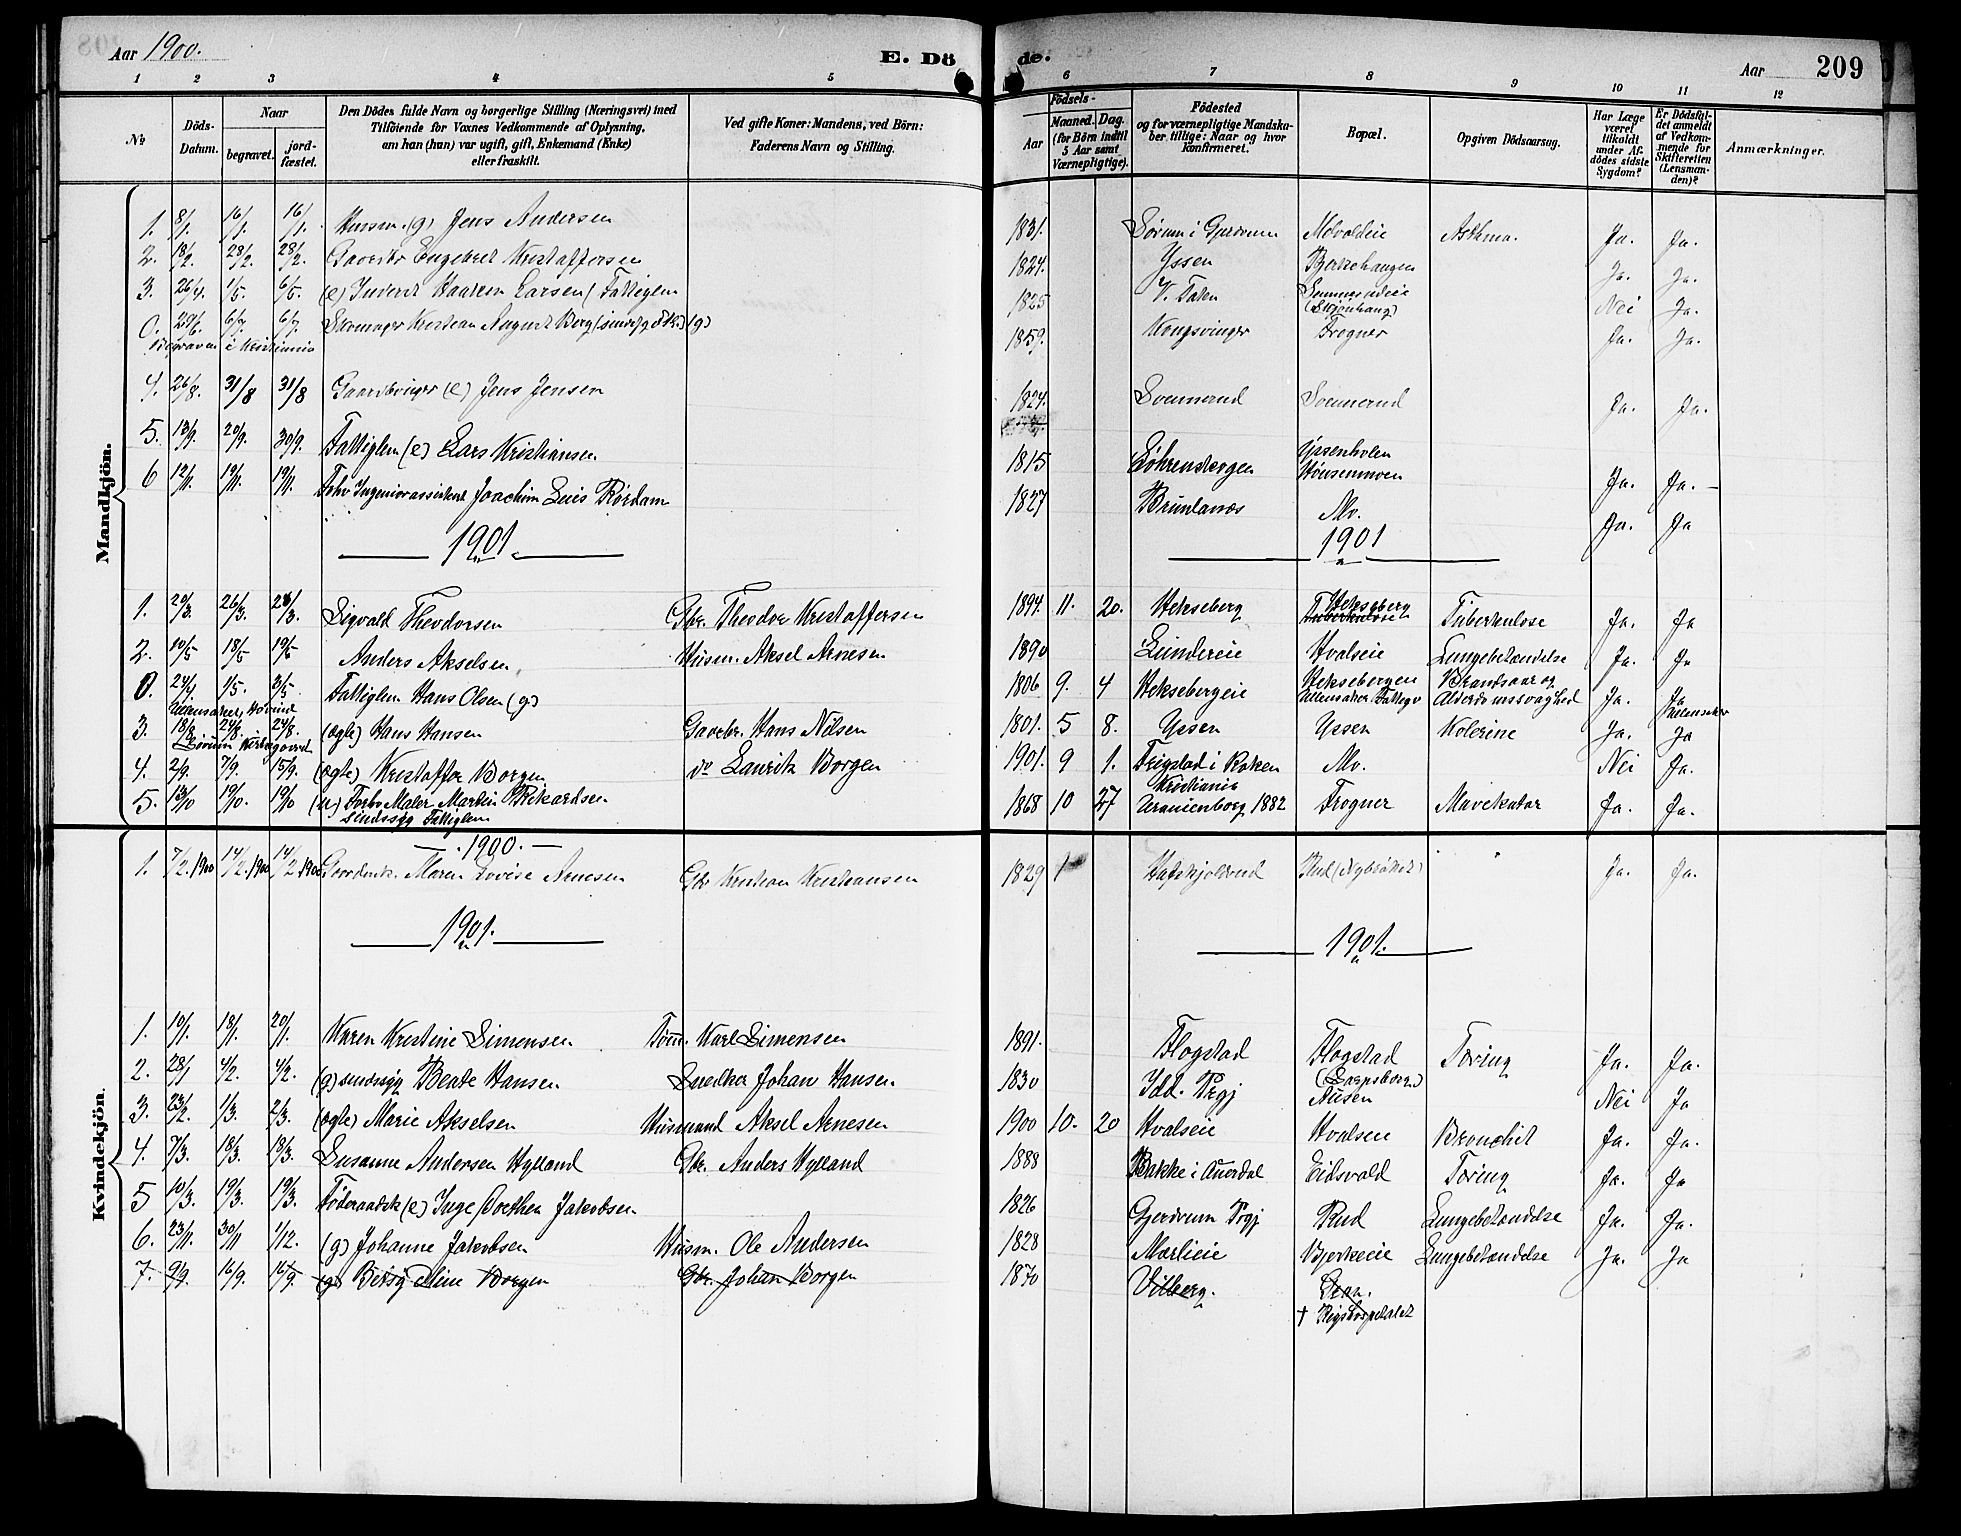 Aar 1900.
E. Dö de.
Aar 209
1 2 3 4 5 6 7 8 9 10 11 12
No
Döds-Datum.
Naar
begravet.
jord-fæstet.
Den Dödes fulde Navn og borgerlige Stilling (Næringsvei) med
Tilföiende for Voxnes Vedkommende af Oplysning,
om han (hun) var ugift, gift, Enkemand (Enke)
eller fraskilt.
Ved gifte Koner: Mandens, ved Börn:
Faderens Navn og Stilling.
Födsels-
Aar
Maaned. Dag.
(for Börn indtil
5 Aar samt
Værnepligtige).
Födested
og for værnepligtige Mandska-
ber tillige: Naar og hvor
konfirmeret.
Bopæl.
Opgiven Dödsaarsag.
Har Læge
været
tilkaldt
under Af-
dödes sidste
Sygdom?
Er Dödsfal-
det anmeldt
af Vedkom-
mende for
Skifteretten
(Lensman-
den)?
Anmærkninger.
Mandkjön.
1. 8/1. 16/1. 16/1. Husm. (g) Jens Andersen 1831. Sörum i Gjerdrum Movoldeie Asthma. Ja. Ja.
2. 18/2. 28/2. 28/2. Gaardbr Engebret Kristoffersen 1824. Yssen Bjerkehaugen Ja. Ja.
3. 26/4. 1/5. 6/5. (e) Larsen (Fattiglem 1825 Nei Ja.
0. 29/6. 6/7. 6/7. Skomager Kristian August Berg (g) 1859. Kongsvinger Frogner Ja. Ja.
Begraven i Kristiania
4. 26/8. 31/8 31/8 (e) Jens Jensen 1824. Svennerud Svennerud Ja. Ja.
5. 13/9. 20/9. 30/9. Fattiglem (e) Lars Kristiansen 1815 Yssenholen Ja. Ja. —
6 12/11. 19/11. 19/11. Fohv Ingeniörassistent Joachim Luis Rördam 1827 Brunlanæs Mo. Ja. Ja
1901. 1901
1. 20/3. 26/3. 28/3. Sigvald Theodorsen Gbr. Theodor Kristoffersen 1894. 11. 20. Hekseberg Hekseberg Tuberkulose Ja. Ja
2. 10/5 18/5 19/5 Anders Akselsen Husm. Aksel Arnesen 1890 Lundereie Hvalseie Lungebetændelse Ja. Ja
0. 24/4. 1/5. 3/5. Fattiglem Hans Olsen (g) 1806 9. 4 Heksebergeie Heksebergeie Brandsaar og
Ullensaker, Hovind Ullensaker Fattigv Alderdomssvaghed Ja. Ja Ullensaker
3. 18/8. 24/8. 24/8. (ægte) Hans Hansen Gaardbr. Hans Nilsen 1801. 5 8. Yssen Yssen Kolerine Ja. Ja
Sörum Kirkegaard
4. 2/9. 7/9. 15/9. (ægte) Kristoffer Borgen do Lauritz Borgen 1901. 9 1. Frigstad i Raken Mo. Nei Ja.
5. 13/10 19/10. 19/10 (u) Forhv Maler Martin Rikardsen 1868 10 27 Kristiania Uranienborg 1882 Frogner Mavekatar Ja. Ja.
sindssyg Fattiglem
Kvindekjön.
1900.
1. 7/2. 1900 14/2. 1900 14/2. 1900 Maren Lovise Arnesen Gbr Kristian Kristiansen 1829 Hafskjoldrud Rud (Nybråket) " Ja. Ja.
1901. 1901.
1. 10/1. 18/1. 20/1. Karen Kristine Simensen Töm. Karl Simensen 1891. Flogstad Flogstad Tæring Ja. Ja.
2. 28/1 4/2. 4/2. (g) sindssyg Beate Hansen Snedker Johan Hansen 1830 Idd. Prgj (Sarpsborg) Ausen Nei Ja
3. 23/2. 1/3. 2/3. (ægte) Marie Akselsen Husmand Aksel Arnesen 1900 10. 20 Hvalseie Hvalseie Bronchit Ja. Ja.
4. 7/3. 18/3. 18/3. Susanne Andersen Hylland Gbr. Anders Hylland 1888 Bakke i Aurdal Eidsvold Tæring Ja. Ja
5 10/3. 19/3. 19/3. Föderaadsk (e) Inge Dorthea Jakobsen 1826 Gjerdrum Prgj Rud Lungebetændelse Ja. Ja.
6. 23/11. 30/11 1/12. (g) Johanne Jakobsen Husm. Ole Andersen 1828 Mærlieie Bjerkeeie Lungebetændelse Ja. Ja
7. 9/9. 16/9. 16/9. (g) Betsy Borgen Gbr. Johan Borgen 1870 Vilberg.
† Rigshospitalet